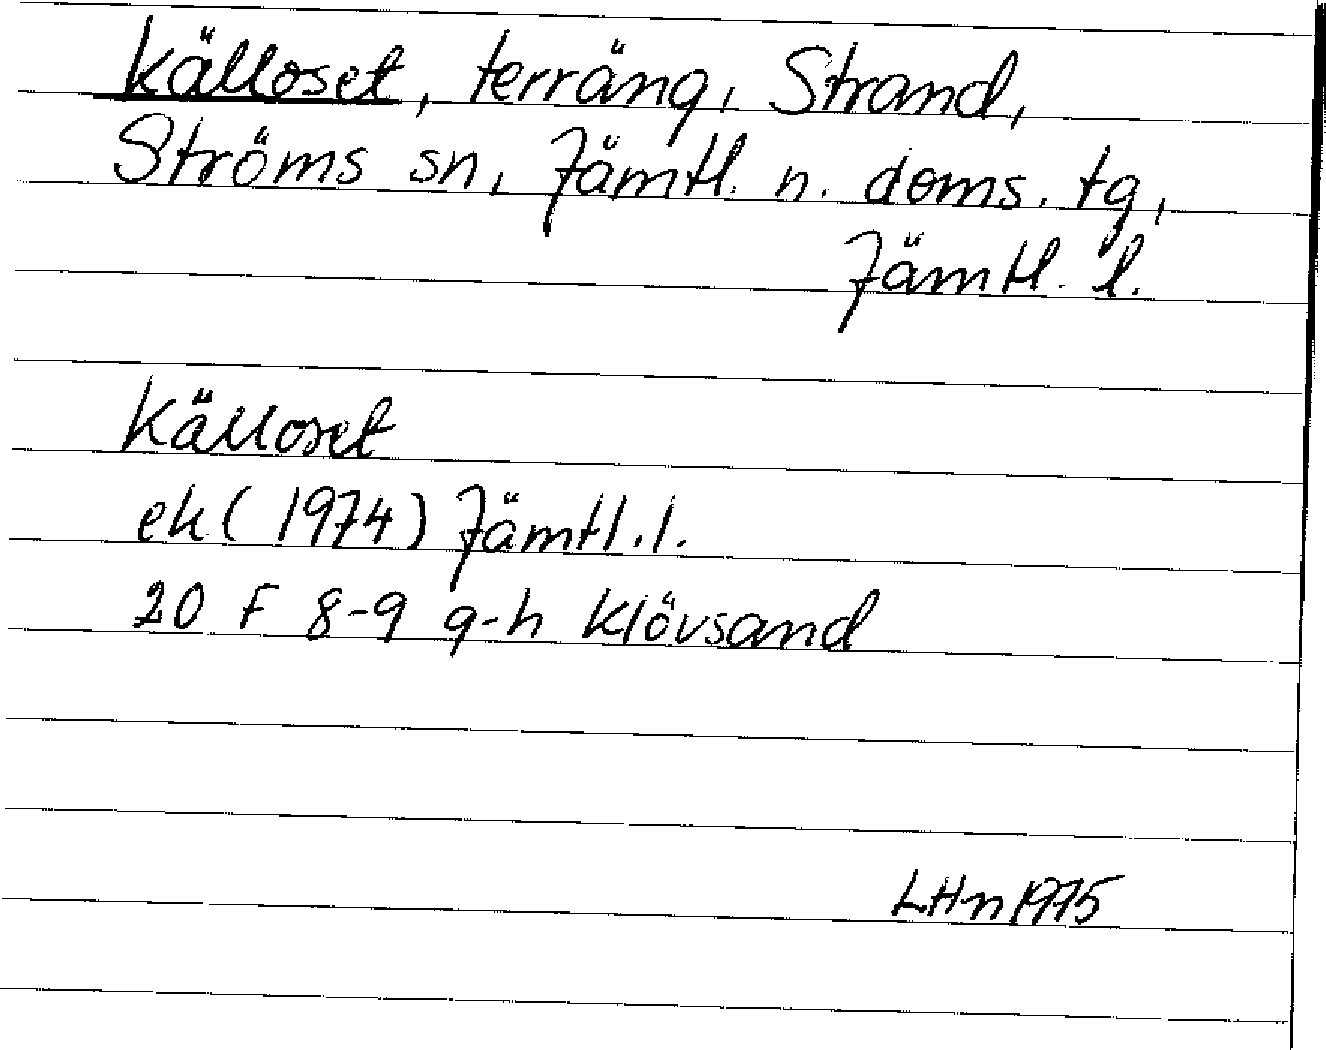 Källoset, terräng, Strand,
Ströms sn, Jämtl. n. doms. tg,
Jämtl. l.
Källoset
ek (1974) Jämtl. l.
20 F 8-9 g-h Klövsand
LHn 1975